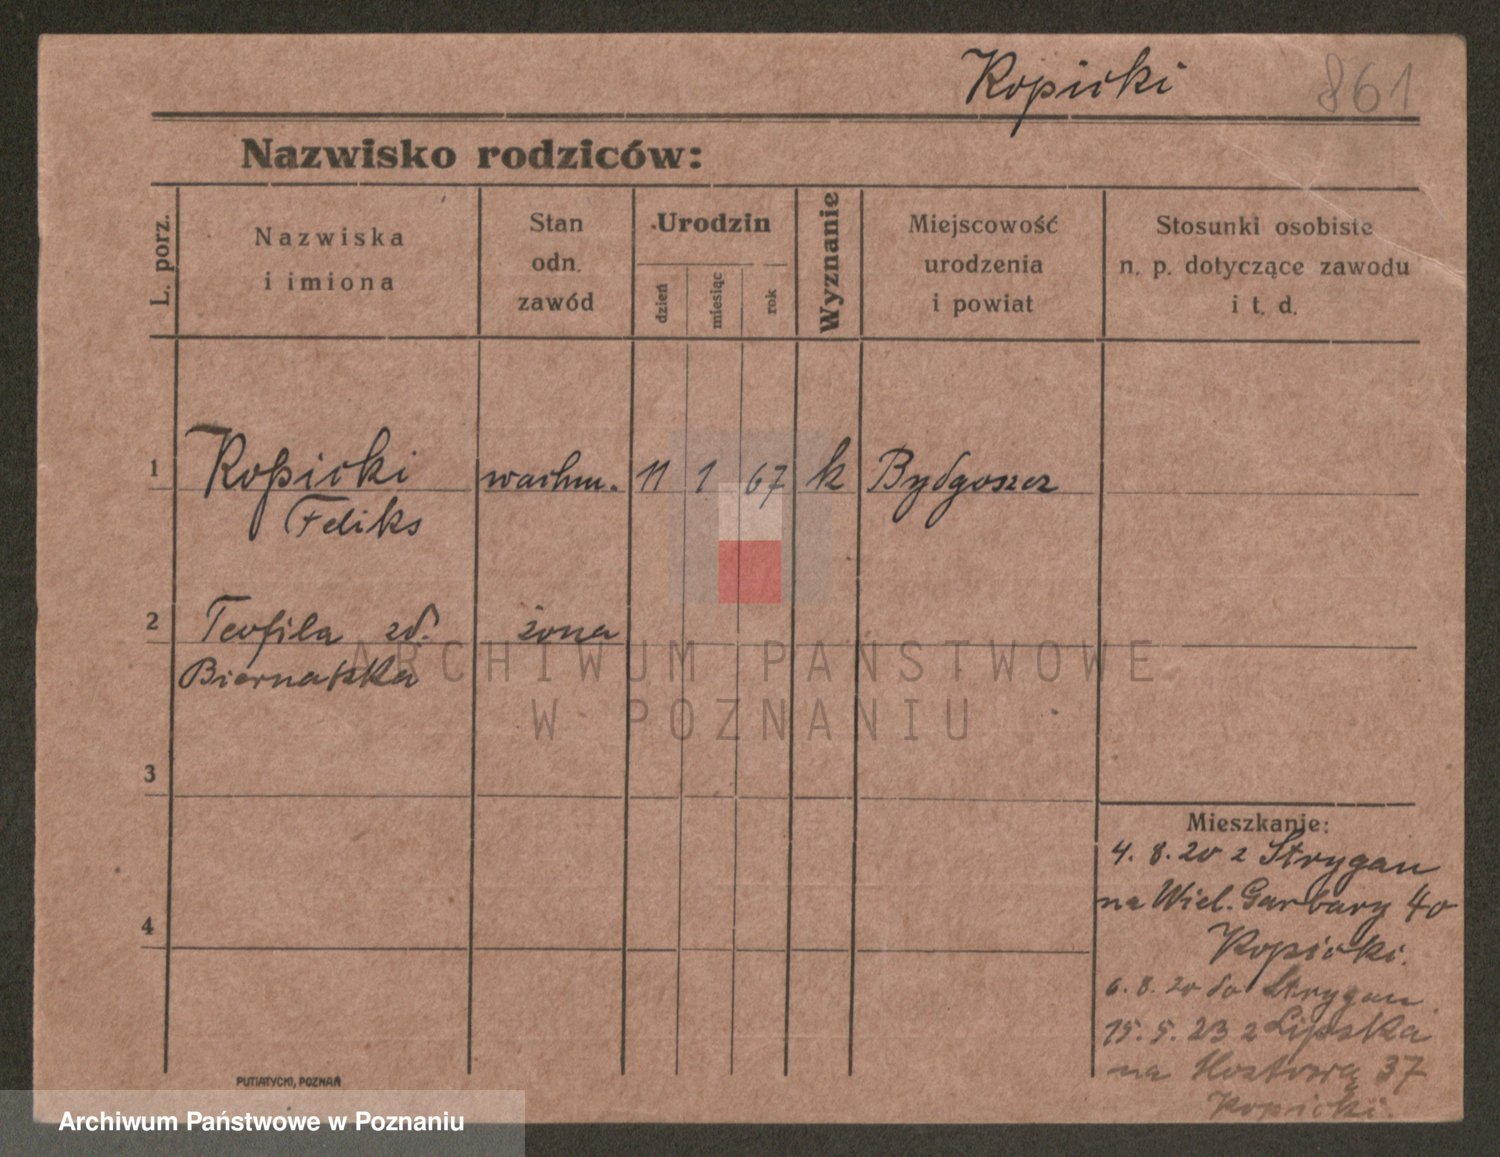 Kopicki 861
Nazwisko rodziców:
L. porz.
Nazwiska
i imiona
Stan
odn.
zawód
Urodzin
dzień
miesiąc
rok
Wyznanie
Miejscowość
urodzenia
i powiat
Stosunki osobiste
n. p. dotyczące zawodu
i t. d.
1 Kopicki wachm. 11 1 67 k Bydgoszcz
Feliks
2 Teofila zd. żona
Biernatzka
ARCHIWUM PAŃSTWOWE
W POZNANIU
3
Mieszkanie:
4. 8. 20 z Strygan
na Wiel. Garbary 40
4
Kopicki.
6. 8. 20 do Strygan
15. 5. 23 z Lipska
na 37
Kopicki.
PUTIATYCKI, POZNAŃ
Archiwum Państwowe w Poznaniu